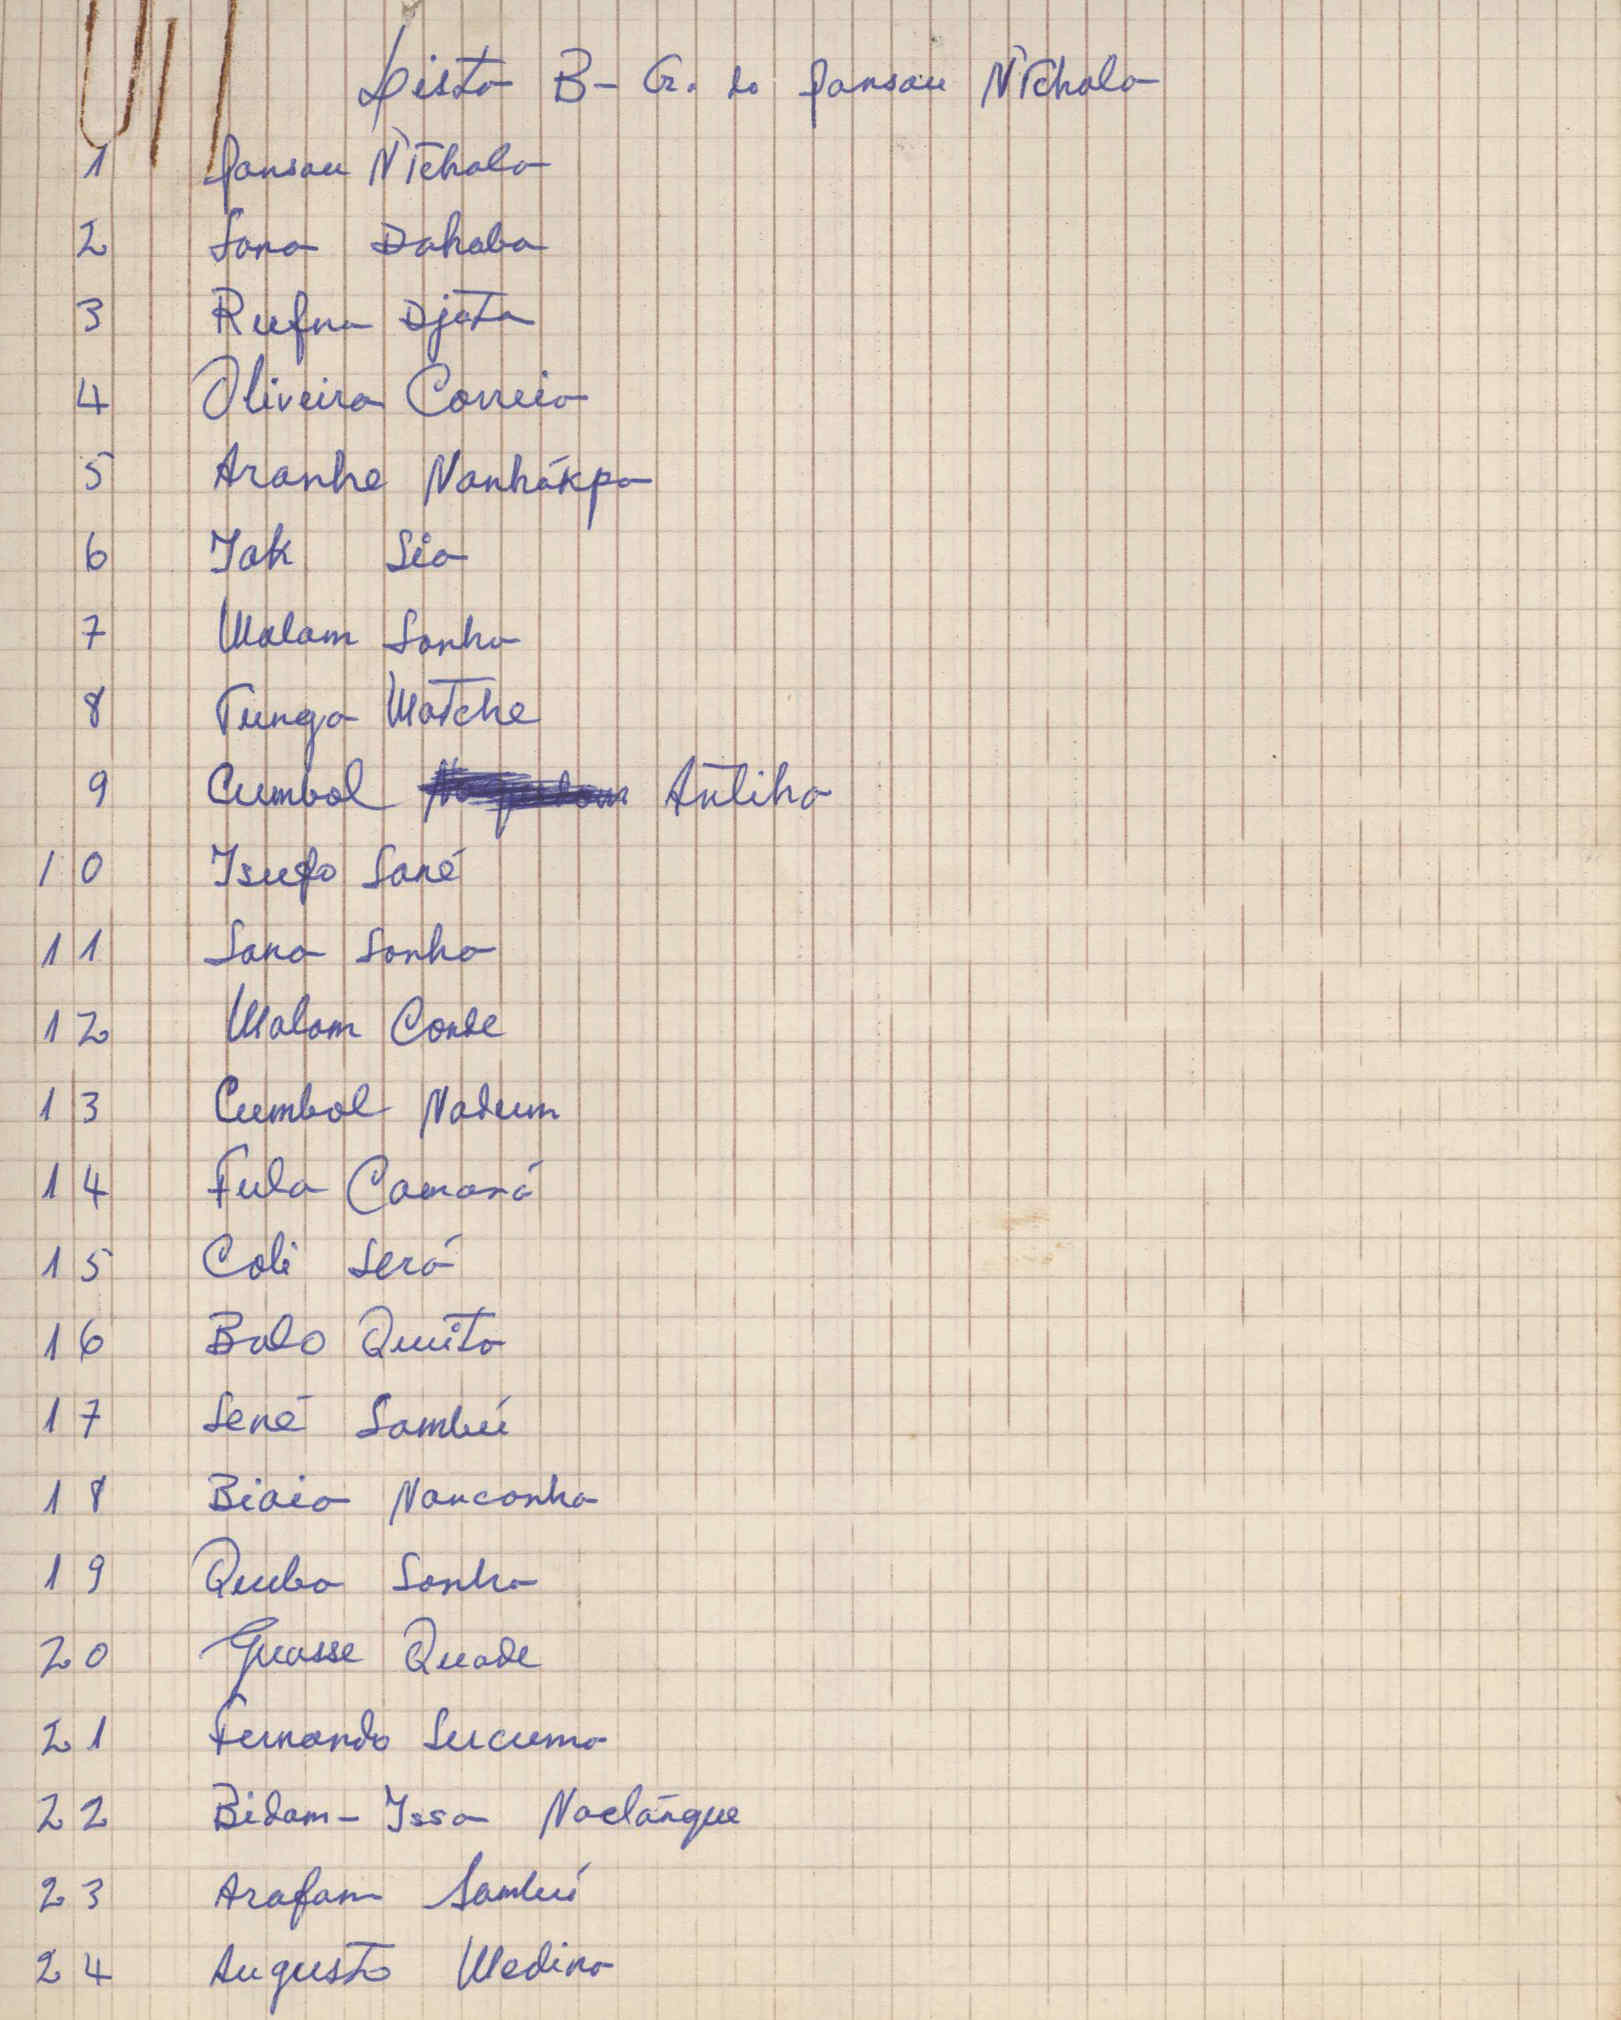 Lista B- G. do Pansau N'Tchala
1 Pansau N'Tchala
2 Sana Dahaba
3 Rufna Djata
4 Oliveira Correia
5 Aranhe Nanhákpa
6 Iak Sia
7 Malam Sanha
8 Tunga Matche
9 Cumbal Antiha
10 Isufo Sané
11 Sana Sanha
12 Malam Conde
13 Cumbal Nadum
14 Fula Camará
15 Coli Será
16 Balo Quita
17 Sené Sambú
18 Biaia Nanconha
19 Queba Sanha
20 Guasse Quade
21 Fernando Sucuma
22 Bidam- Issa Naclangue
23 Arafam Sambú
24 Augusto Medina